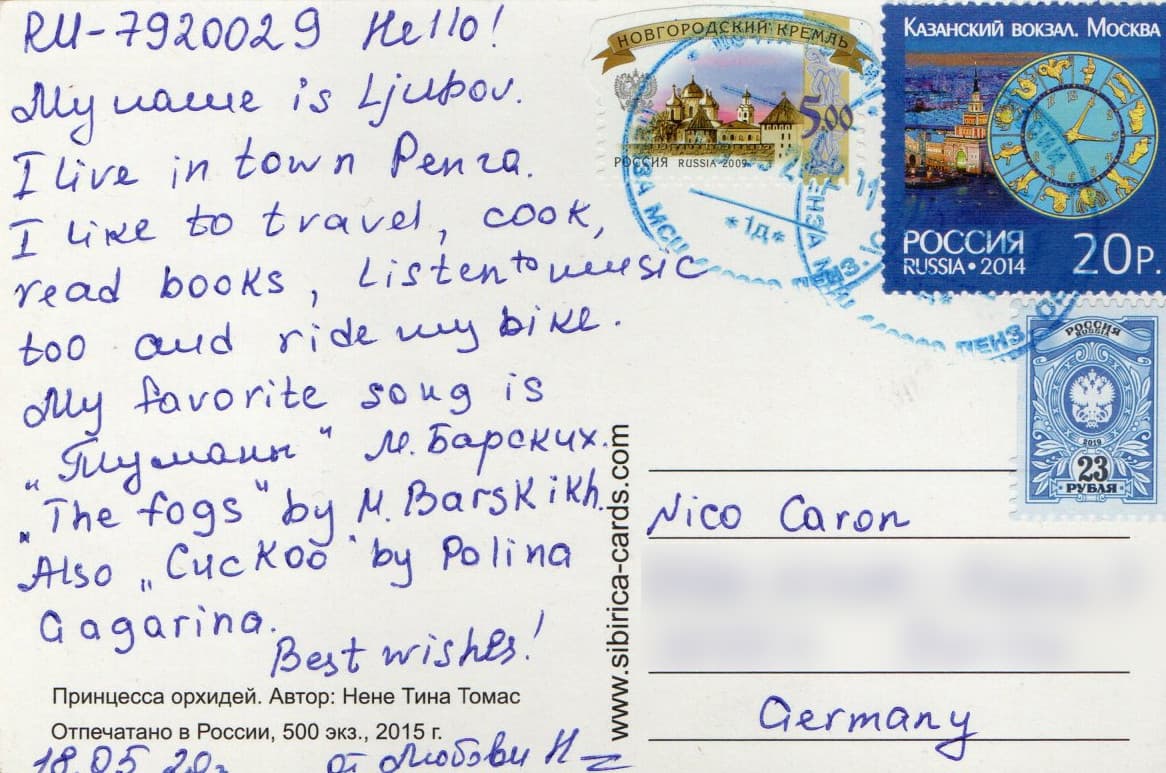 RU-7920029 Hello!
My name is Ljubov.
I live in town Penza.
I like to travel, cook,
read books, listen to music
too and ride my bike.
My favorite song is
„Туманы" М. Барских.
„The fogs" by M. Barskikh.
Also „Cuckoo" by Polina
Gagarina.
Best wishes!
Принцесса орхидей. Автор: Нене Тина Томас
Отпечатано в России, 500 экз., 2015 г.
18.05.20г. от Любови Н
www.sibirica-cards.com
НОВГОРОДСКИЙ КРЕМЛЬ
5.00
РОССИЯ RUSSIA 2009
*1д*
КАЗАНСКИЙ ВОКЗАЛ. МОСКВА
РОССИЯ
RUSSIA • 2014
20р.
РОССИЯ
RUSSIA
2019
23
РУБЛЯ
Nico Caron
Germany